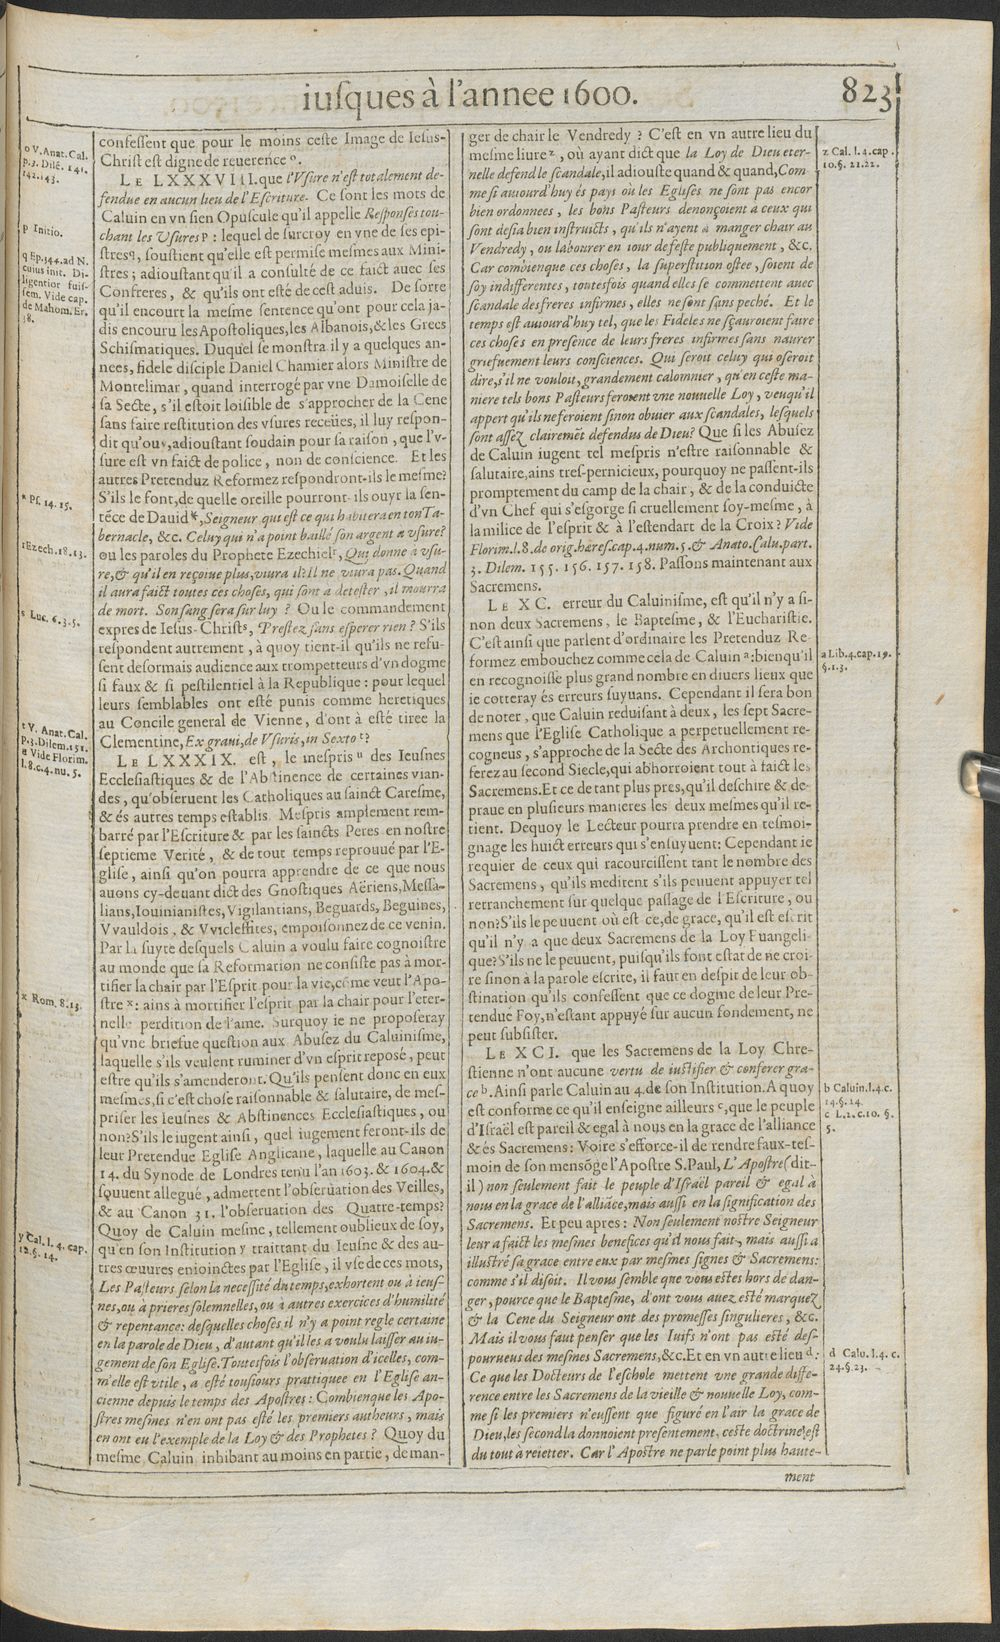 iusques à l'annee 1600.
823
confessent que pour le moins ceste Image de Iesus-
Christ est digne de reuerence o.
LE LXXXVIII. que l'Vsure n'est totalement de-
fendue en aucun lieu de l'Escriture. Ce sont les mots de
Caluin en vn sien Opuscule qu'il appelle Responses tou-
chant les Vsures p : lequel de surcroy en vne de ses epi-
stres q, soustient qu'elle est permise mesmes aux Mini-
stres ; adioustant qu'il a consulté de ce faict auec ses
Confreres, & qu'ils ont esté de cest aduis. De sorte
qu'il encourt la mesme sentence qu'ont pour cela ja-
dis encouru les Apostoliques, les Albanois, & les Grecs
Schismatiques. Duquel se monstra il y a quelques an-
nees, fidele disciple Daniel Chamier alors Ministre de
Montelimar, quand interrogé par vne Damoiselle de
sa Secte, s'il estoit loisible de s'approcher de la Cene
sans faire restitution des vsures receües, il luy respon-
dit qu'ouy, adioustant soudain pour sa raison, que l'v-
sure est vn faict de police, non de conscience. Et les
autres Pretenduz Reformez respondront-ils le mesme?
S'ils le font, de quelle oreille pourront-ils ouyr la sen-
tẽce de Dauid *, Seigneur qui est ce qui habitera en ton Ta-
bernacle, &c. Celuy qui n'a point baillé son argent a vsure?
ou les paroles du Prophete Ezechiel r, Qui donne a vsu-
re, & qu'il en reçoiue plus, viura il? Il ne viura pas. Quand
il aura faict toutes ces choses, qui sont a detester, il mourra
de mort. Son sang sera sur luy ? Ou le commandement
expres de Iesus-Christ s, Prestez sans esperer rien ? S'ils
respondent autrement, à quoy tient-il qu'ils ne refu-
sent desormais audience aux trompetteurs d'vn dogme
si faux & si pestilentiel à la Republique : pour lequel
leurs semblables ont esté punis comme heretiques
au Concile general de Vienne, d'ont à esté tiree la
Clementine, Ex graui, de Vsuris, in Sexto t ?
LE LXXXIX. est, le mespris u des Ieusnes
Ecclesiastiques & de l'Abstinence de certaines vian-
des, qu'obseruent les Catholiques au sainct Caresme,
& és autres temps establis. Mespris amplement rem-
barré par l'Escriture & par les saincts Peres en nostre
septieme Verité, & de tout temps reprouué par l'E-
glise, ainsi qu'on pourra apprendre de ce que nous
auons cy-deuant dict des Gnostiques Aëriens, Messa-
lians, Iouinianistes, Vigilantians, Beguards, Beguines,
Vvauldois, & Vvicleffites, empoisonnez de ce venin.
Par la suyte desquels Caluin a voulu faire cognoistre
au monde que sa Reformation ne consiste pas à mor-
tifier la chair par l'Esprit pour la vie, cõme veut l'Apo-
stre x : ains à mortifier l'esprit par la chair pour l'eter-
nelle perdition de l'ame. Surquoy ie ne proposeray
qu'vne briefue question aux Abusez du Caluinisme,
laquelle s'ils veulent ruminer d'vn esprit reposé, peut
estre qu'ils s'amenderont. Qu'ils pensent donc en eux
mesmes, si c'est chose raisonnable & salutaire, de mes-
priser les Ieusnes & Abstinences Ecclesiastiques, ou
non? S'ils le iugent ainsi, quel iugement feront-ils de
leur Pretendue Eglise Anglicane, laquelle au Canon
14. du Synode de Londres tenu l'an 1603. & 1604. &
souuent allegué, admettent l'obseruation des Veilles,
& au Canon 31, l'obseruation des Quatre-temps?
Quoy de Caluin mesme, tellement oublieux de soy,
qu'en son Institution y traittant du Ieusne & des au-
tres œuures enioinctes par l'Eglise, il vse de ces mots,
Les Pasteurs selon la necessité du temps, exhortent ou à ieus-
nes, ou à prieres solemnelles, ou à autres exercices d'humilité
& repentance: desquelles choses il n'y a point regle certaine
en la parole de Dieu, d'autant qu'il les a voulu laisser au iu-
gement de son Eglise. Toutesfois l'obseruation d'icelles, com-
m'elle est vtile, a esté tousiours prattiquee en l'Eglise an-
cienne depuis le temps des Apostres : Combienque les Apo-
stres mesmes n'en ont pas esté les premiers autheurs, mais
en ont eu l'exemple de la Loy & des Prophetes ? Quoy du
mesme Caluin inhibant au moins en partie, de man-
o V. Anat. Cal.
p.3. Dilē. 141.
142.143.
p Initio.
q Ep.344. ad N.
cuius init. Di-
ligentior fuis-
sem. Vide cap.
de Mahom. Er.
38.
* Ps. 14. 15.
r Ezech. 18.13.
s Luc. 6.3.5.
t V. Anat. Cal.
p.3. Dilem. 151.
u Vide Florim.
l.8.c.4.nu.5.
x Rom. 8.13.
y Cal. l. 4. cap.
12.§. 14.
ger de chair le Vendredy ? C'est en vn autre lieu du
mesme liure z, où ayant dict que la Loy de Dieu eter-
nelle defend le scandale, il adiouste quand & quand, Com-
me si auiourd'huy és pays où les Eglises ne sont pas encor
bien ordonnees, les bons Pasteurs denonçoient a ceux qui
sont desia bien instruicts, qu'ils n'ayent à manger chair au
Vendredy, ou labourer en iour de feste publiquement, &c.
Car combienque ces choses, la superstition ostee, soient de
soy indifferentes, toutesfois quand elles se commettent auec
scandale des freres infirmes, elles ne sont sans peché. Et le
temps est auiourd'huy tel, que les Fideles ne sçauroient faire
ces choses en presence de leurs freres infirmes sans naurer
griefuement leurs consciences. Qui seroit celuy qui oseroit
dire, s'il ne vouloit, grandement calomnier, qu'en ceste ma-
niere tels bons Pasteurs feroient vne nouuelle Loy, veuqu'il
appert qu'ils ne feroient sinon obuier aux scandales, lesquels
sont assez clairemẽt defendus de Dieu? Que si les Abusez
de Caluin iugent tel mespris n'estre raisonnable &
salutaire, ains tres-pernicieux, pourquoy ne passent-ils
promptement du camp de la chair, & de la conduicte
d'vn Chef qui s'esgorge si cruellement soy-mesme, à
la milice de l'esprit & à l'estendart de la Croix? Vide
Florim. l.8. de orig. hæres. cap.4. num.5. & Anato. Calu. part.
3. Dilem. 155. 156. 157. 158. Passons maintenant aux
Sacremens.
LE XC. erreur du Caluinisme, est qu'il n'y a si-
non deux Sacremens, le Baptesme, & l'Eucharistie.
C'est ainsi que parlent d'ordinaire les Pretenduz Re-
formez embouchez comme cela de Caluin a : bienqu'il
en recognoisse plus grand nombre en diuers lieux que
ie cotteray és erreurs suyuans. Cependant il sera bon
de noter, que Caluin reduisant à deux, les sept Sacre-
mens que l'Eglise Catholique a perpetuellement re-
cogneus, s'approche de la Secte des Archontiques re-
ferez au second Siecle, qui abhorroient tout à faict les
Sacremens. Et ce de tant plus pres, qu'il deschire & de-
praue en plusieurs manieres les deux mesmes qu'il re-
tient. Dequoy le Lecteur pourra prendre en tesmoi-
gnage les huict erreurs qui s'ensuyuent: Cependant ie
requier de ceux qui racourcissent tant le nombre des
Sacremens, qu'ils meditent s'ils peuuent appuyer tel
retranchement sur quelque passage de l'Escriture, ou
non? S'ils le peuuent où est ce, de grace, qu'il est escrit
qu'il n'y a que deux Sacremens de la Loy Euangeli-
que? S'ils ne le peuuent, puisqu'ils font estat de ne croi-
re sinon à la parole escrite, il faut en despit de leur ob-
stination qu'ils confessent que ce dogme de leur Pre-
tendue Foy, n'estant appuyé sur aucun fondement, ne
peut subsister.
LE XCI. que les Sacremens de la Loy Chre-
stienne n'ont aucune vertu de iustifier & conferer gra-
ce b. Ainsi parle Caluin au 4. de son Institution. A quoy
est conforme ce qu'il enseigne ailleurs c, que le peuple
d'Israël est pareil & egal à nous en la grace de l'alliance
& és Sacremens: Voire s'efforce-il de rendre faux-tes-
moin de son mensõge l'Apostre S. Paul, L'Apostre (dit-
il) non seulement fait le peuple d'Israël pareil & egal à
nous en la grace de l'alliãce, mais aussi en la signification des
Sacremens. Et peu apres : Non seulement nostre Seigneur
leur a faict les mesmes benefices qu'il nous fait, mais aussi a
illustré sa grace entre eux par mesmes signes & Sacremens:
comme s'il disoit. Il vous semble que vous estes hors de dan-
ger, pource que le Baptesme, d'ont vous auez esté marquez
& la Cene du Seigneur ont des promesses singulieres, &c.
Mais il vous faut penser que les Iuifs n'ont pas esté des-
pourueus des mesmes Sacremens, &c. Et en vn autre lieu d :
Ce que les Docteurs de l'eschole mettent vne grande diffe-
rence entre les Sacremens de la vieille & nouuelle Loy, com-
me si les premiers n'eussent que figuré en l'air la grace de
Dieu, les second la donnoient presentement, ceste doctrine est
du tout à reietter. Car l'Apostre ne parle point plus haute-
ment
z Cal. l. 4. cap.
10. §. 21.22.
a Lib. 4. cap. 19.
§. 1.3.
b Caluin. l. 4. c.
14. §. 14
c L. 2. c. 10. §.
5.
d Calu. l. 4. c.
24. §. 23.